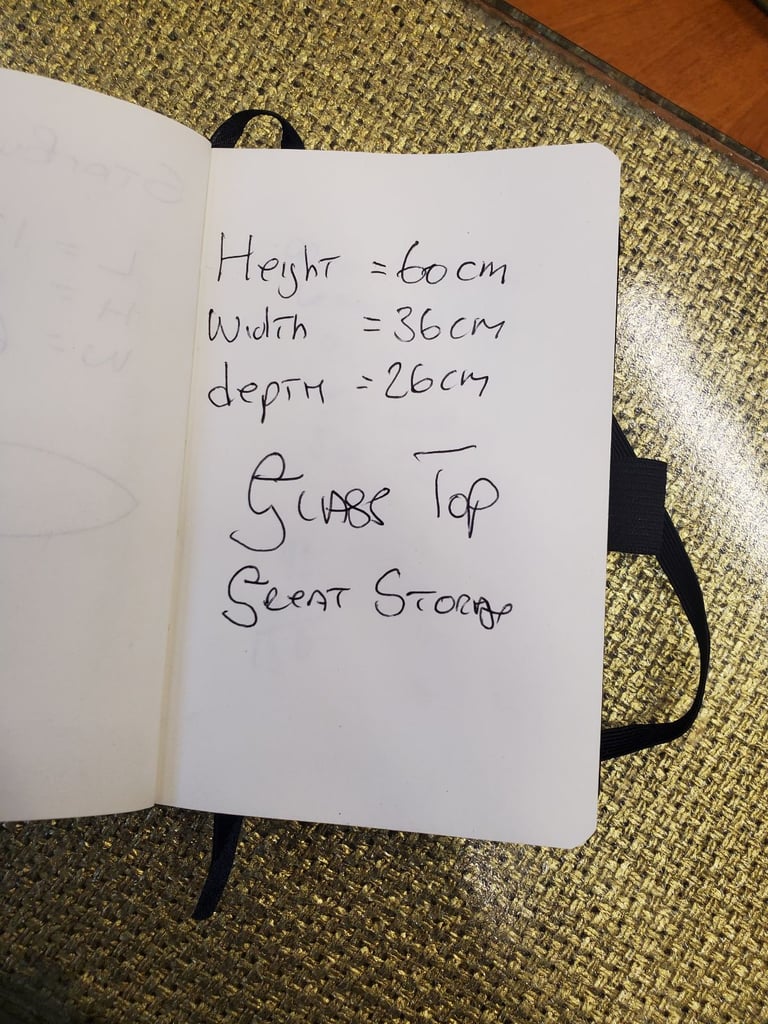 Height = 60cm
Width = 36cm
depth = 26cm
Glass Top
Great Storage